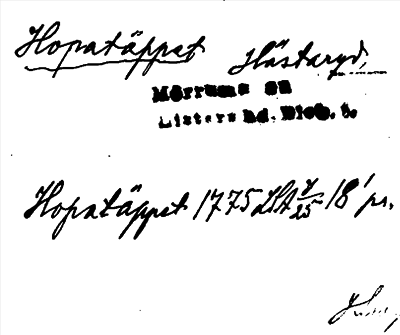 Hopatäppet Hästaryd,
Mörrums sn
Listers hd. Blek. l.
Hopatäppet 1775 LSA 25 18' pr.